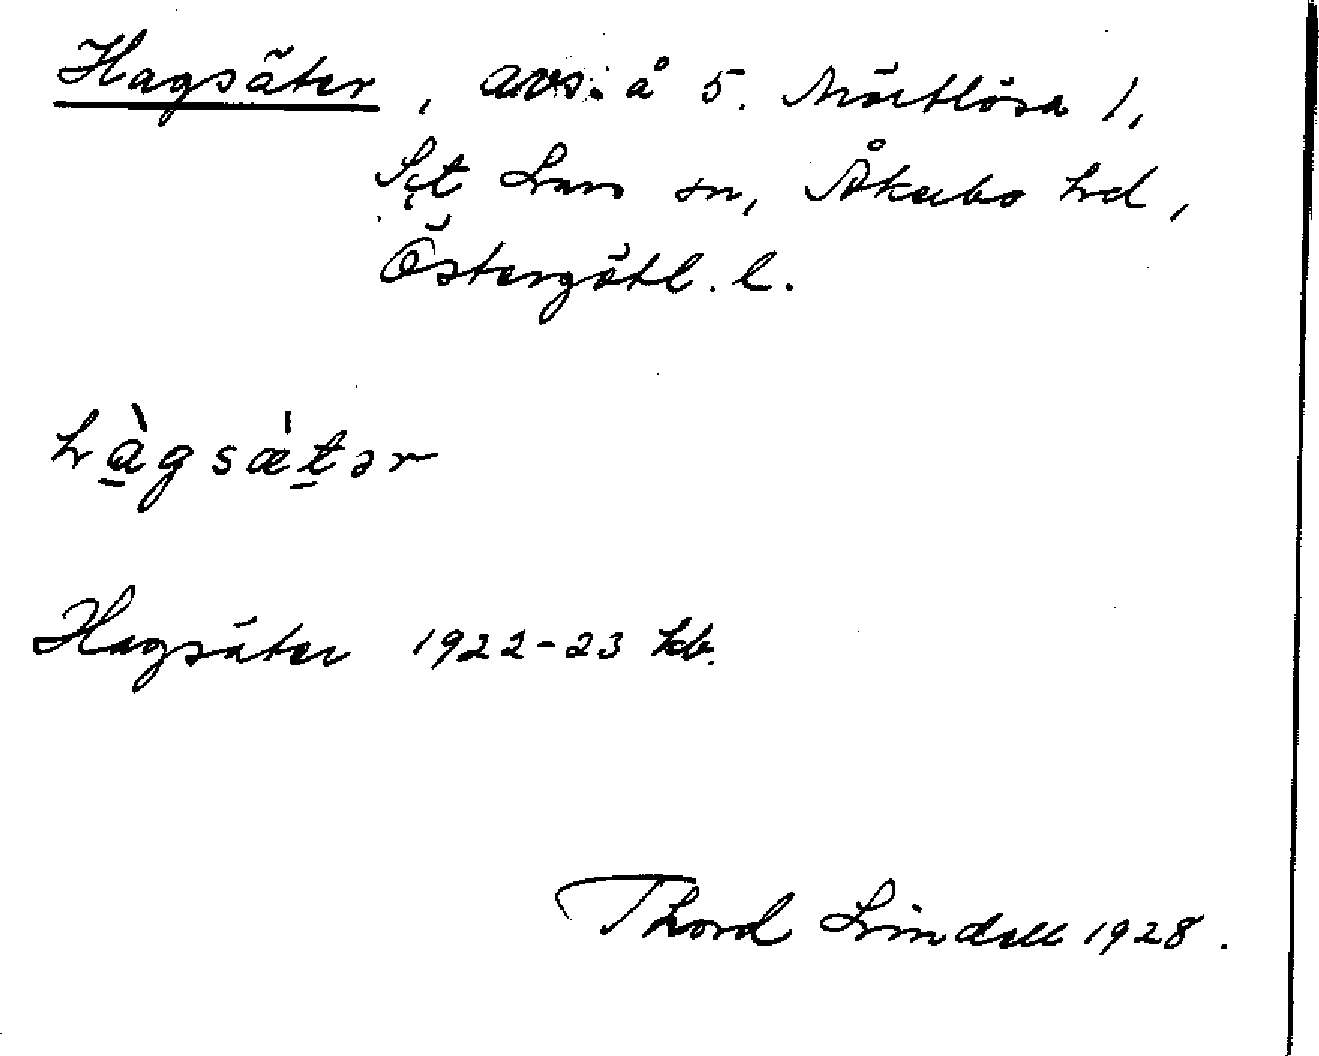 Hagsäter, avs. å 5. Mörtlösa 1,
S:t Lars sn, Åkerbo hd,
Östergötl. l.
hàgsæ̀tər
Hagsäter 1922-23 hb.
Thord Lindell 1928.